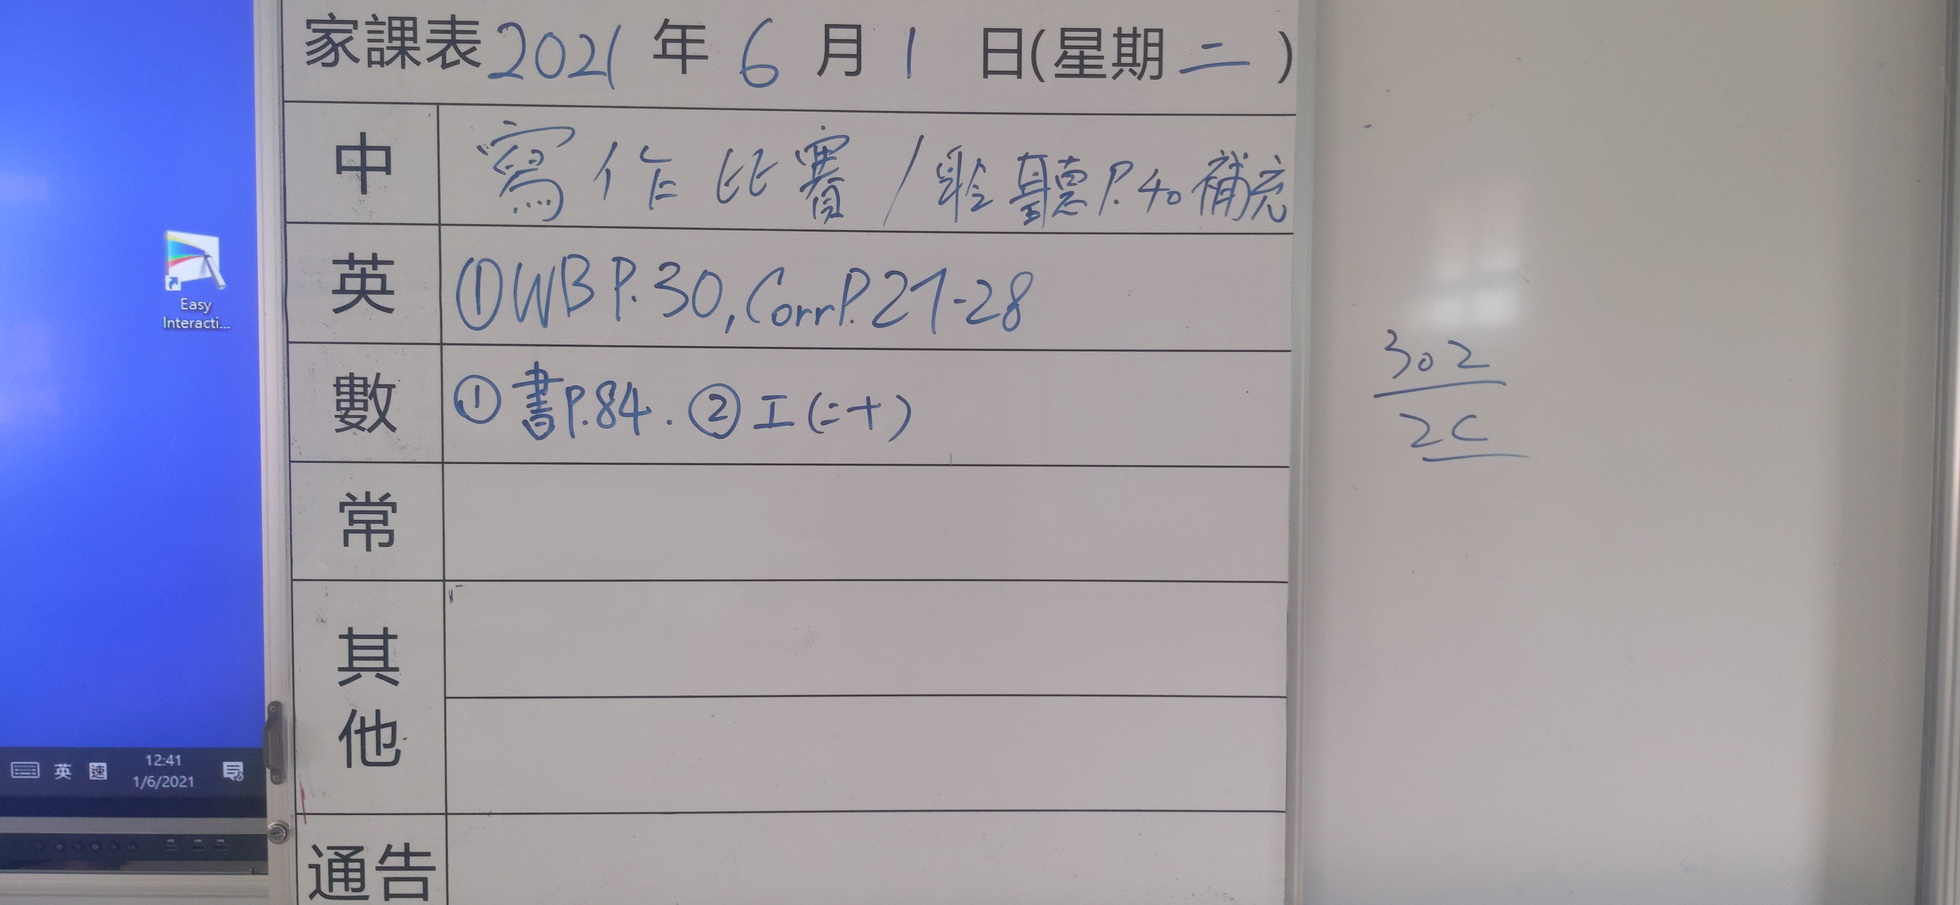 家課表 2021 年 6 月 1 日(星期 二 )
中 寫作比賽 / 聆聽 P.40 補充
英 ① WB P.30, Corr P.27-28
數 ① 書 P.84. ② 工(二十)
常
其他
通告
302
2C
Easy
Interacti...
英 速 12:41
1/6/2021